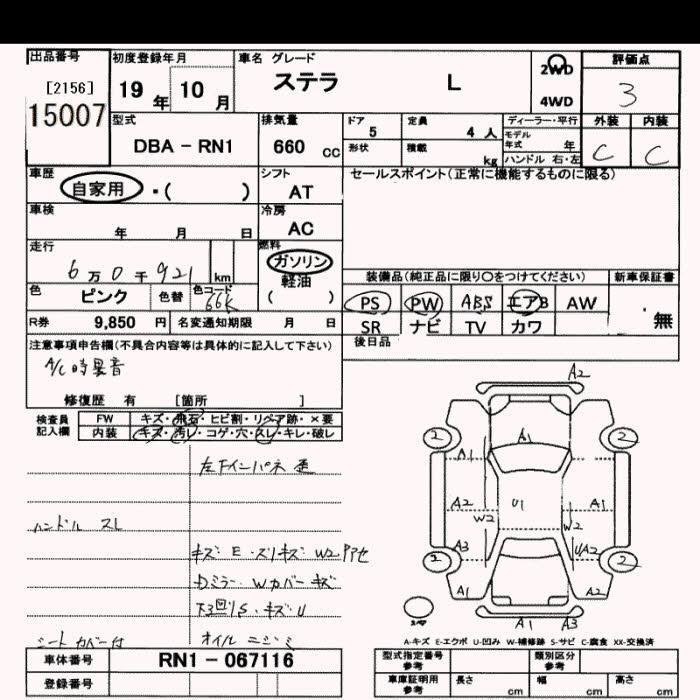 出品番号 初度登録年月 車名 グレード 評価点
[2156] 19 年 10 月 ステラ L 2WD 3
15007 4WD
型式 排気量 ドア 定員 ディーラー・平行 外装 内装
DBA - RN1 660 cc 5 4 人 モデル年式 年 C C
形状 積載 kg ハンドル 右・左
車歴 シフト セールスポイント(正常に機能するものに限る)
自家用 ・( ) AT
車検 冷房
年 月 日 AC
走行 燃料
6万0千921 km ガソリン
軽油 装備品(純正品に限り○をつけてください) 新車保証書
色 色替 色コード ( ) PS PW ABS エアB AW ・無
ピンク 66K
R券 9,850 円 名変通知期限 月 日 SR ナビ TV カワ
注意事項申告欄(不具合内容等は具体的に記入して下さい) 後日品
A/C時異音
修復歴 有 [箇所 ]
検査員 FW キズ・飛石・ヒビ割・リペア跡・×要
記入欄 内装 キズ・汚レ・コゲ・穴・スレ・キレ・破レ
左下インパネ
ハンドル スレ
キズ E
Dミラー Wカバー キズ
下回りS・キズU
シートカバー付 オイルニジミ
A2
2 A1 2
A1
A2 U1 A1
W2 W2
A3 UA2
2 2
A1 A2
A1 A3
スペア
A-キズ E-エクボ U-凹み W-補修跡 S-サビ C-腐食 XX-交換済
車体番号 RN1-067116 型式指定番号 参考 類別区分 参考
登録番号 車庫証明用 参考 長さ cm 幅 cm 高さ cm